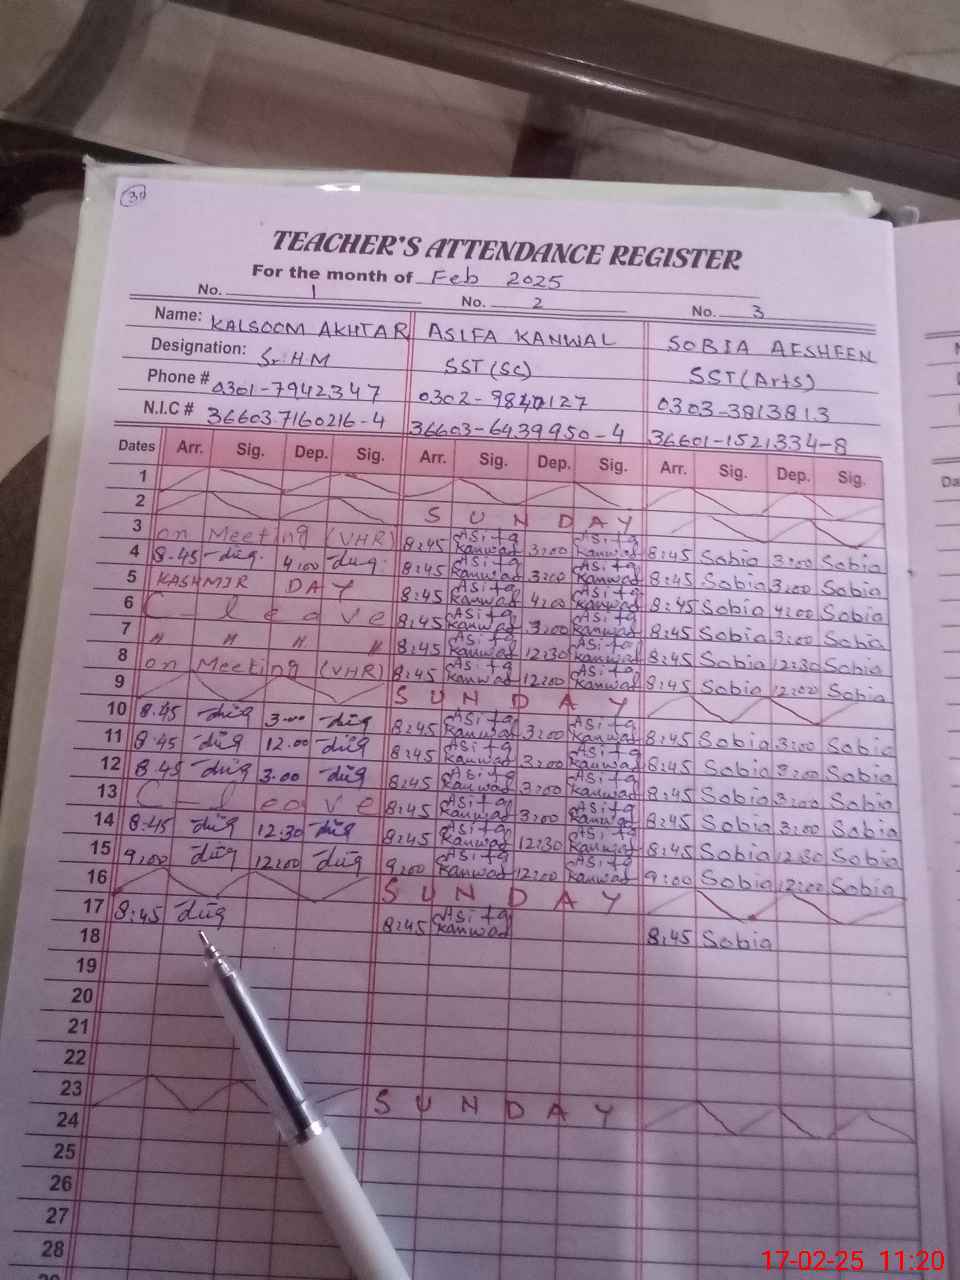 39
TEACHER'S ATTENDANCE REGISTER
For the month of Feb 2025
No. 1 No. 2 No. 3
Name: KALSOOM AKHTAR ASIFA KANWAL SOBIA AFSHEEN
Designation: Sr. H.M SST (Sc) SST (Arts)
Phone # 0301-7942347 0302-9840127 0303-3813813
N.I.C # 36603-7160216-4 36603-6439950-4 36601-1521334-8
Dates Arr. Sig. Dep. Sig. Arr. Sig. Dep. Sig. Arr. Sig. Dep. Sig.
1
2 SUNDAY
3 on Meeting (VHR) 8:45 Asifa Kanwal 3:00 Asifa Kanwal 8:45 Sobia 3:00 Sobia
4 8.45 4:00 8:45 Asifa Kanwal 3:00 Asifa Kanwal 8:45 Sobia 3:00 Sobia
5 KASHMIR DAY 8:45 Asifa Kanwal 4:00 Asifa Kanwal 8:45 Sobia 4:00 Sobia
6 C-leave 8:45 Asifa Kanwal 3:00 Asifa Kanwal 8:45 Sobia 3:00 Sobia
7 " " " " 8:45 Asifa Kanwal 12:30 Asifa Kanwal 8:45 Sobia 12:30 Sobia
8 on Meeting (VHR) 8:45 Asifa Kanwal 12:00 Asifa Kanwal 8:45 Sobia 12:00 Sobia
9 SUNDAY
10 8.45 3.00 8:45 Asifa Kanwal 3:00 Asifa Kanwal 8:45 Sobia 3:00 Sobia
11 8.45 12.00 8:45 Asifa Kanwal 3:00 Asifa Kanwal 8:45 Sobia 3:00 Sobia
12 8.45 3.00 8:45 Asifa Kanwal 3:00 Asifa Kanwal 8:45 Sobia 3:00 Sobia
13 C-leave 8:45 Asifa Kanwal 3:00 Asifa Kanwal 8:45 Sobia 3:00 Sobia
14 8:45 12:30 8:45 Asifa Kanwal 12:30 Asifa Kanwal 8:45 Sobia 12:30 Sobia
15 9:00 12:00 9:00 Asifa Kanwal 12:00 Asifa Kanwal 9:00 Sobia 12:00 Sobia
16 SUNDAY
17 8:45 8:45 Asifa Kanwal 8:45 Sobia
18
19
20
21
22
23 SUNDAY
24
25
26
27
28
17-02-25 11:20